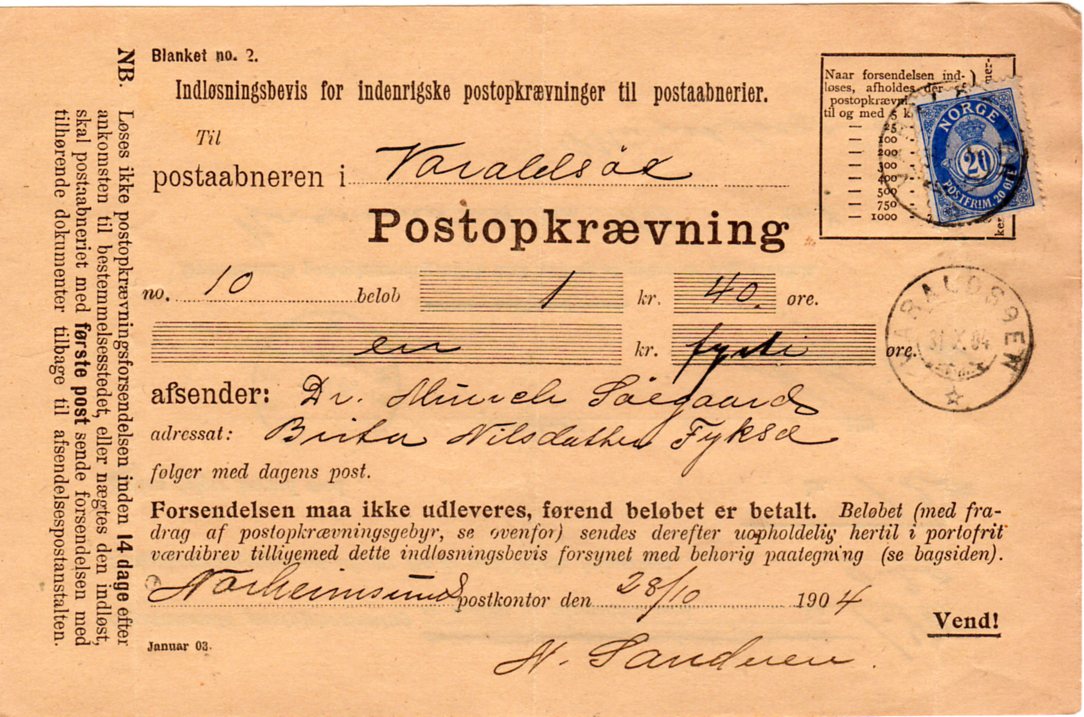 Blanket no. 2.
Indløsningsbevis for indenrigske postopkrævninger til postaabnerier.
Til
postaabneren i Varaldsöx
Postopkrævning
no. 10 beløb 1 kr. 40. øre.
en kr. fyrti øre.
afsender: Dr. Münch Söegaard
adressat: Brita Nilsdatter Fykse
følger med dagens post.
Forsendelsen maa ikke udleveres, førend beløbet er betalt. Beløbet (med fra-
drag af postopkrævningsgebyr, se ovenfor) sendes derefter uopholdelig hertil i portofrit
værdibrev tilligemed dette indløsningsbevis forsynet med behørig paategning (se bagsiden).
Norheimsund postkontor den 28/10 1904
Vend!
Januar 03.
N. Sandven.
NB. Løses ikke postopkrævningsforsendelsen inden 14 dage efter
ankomsten til bestemmelsesstedet, eller nægtes den indløst,
skal postaabneriet med første post sende forsendelsen med
tilhørende dokumenter tilbage til afsendelsespostanstalten.
Naar forsendelsen ind-
løses, afholdes der
postopkrævn
til og med 5 k
— 25
— 100
— 200
— 300
— 400
— 500
— 750
— 1000
NORGE
20
POSTFRIM. 20 ØRE
VARALDSØEN
31 X 04